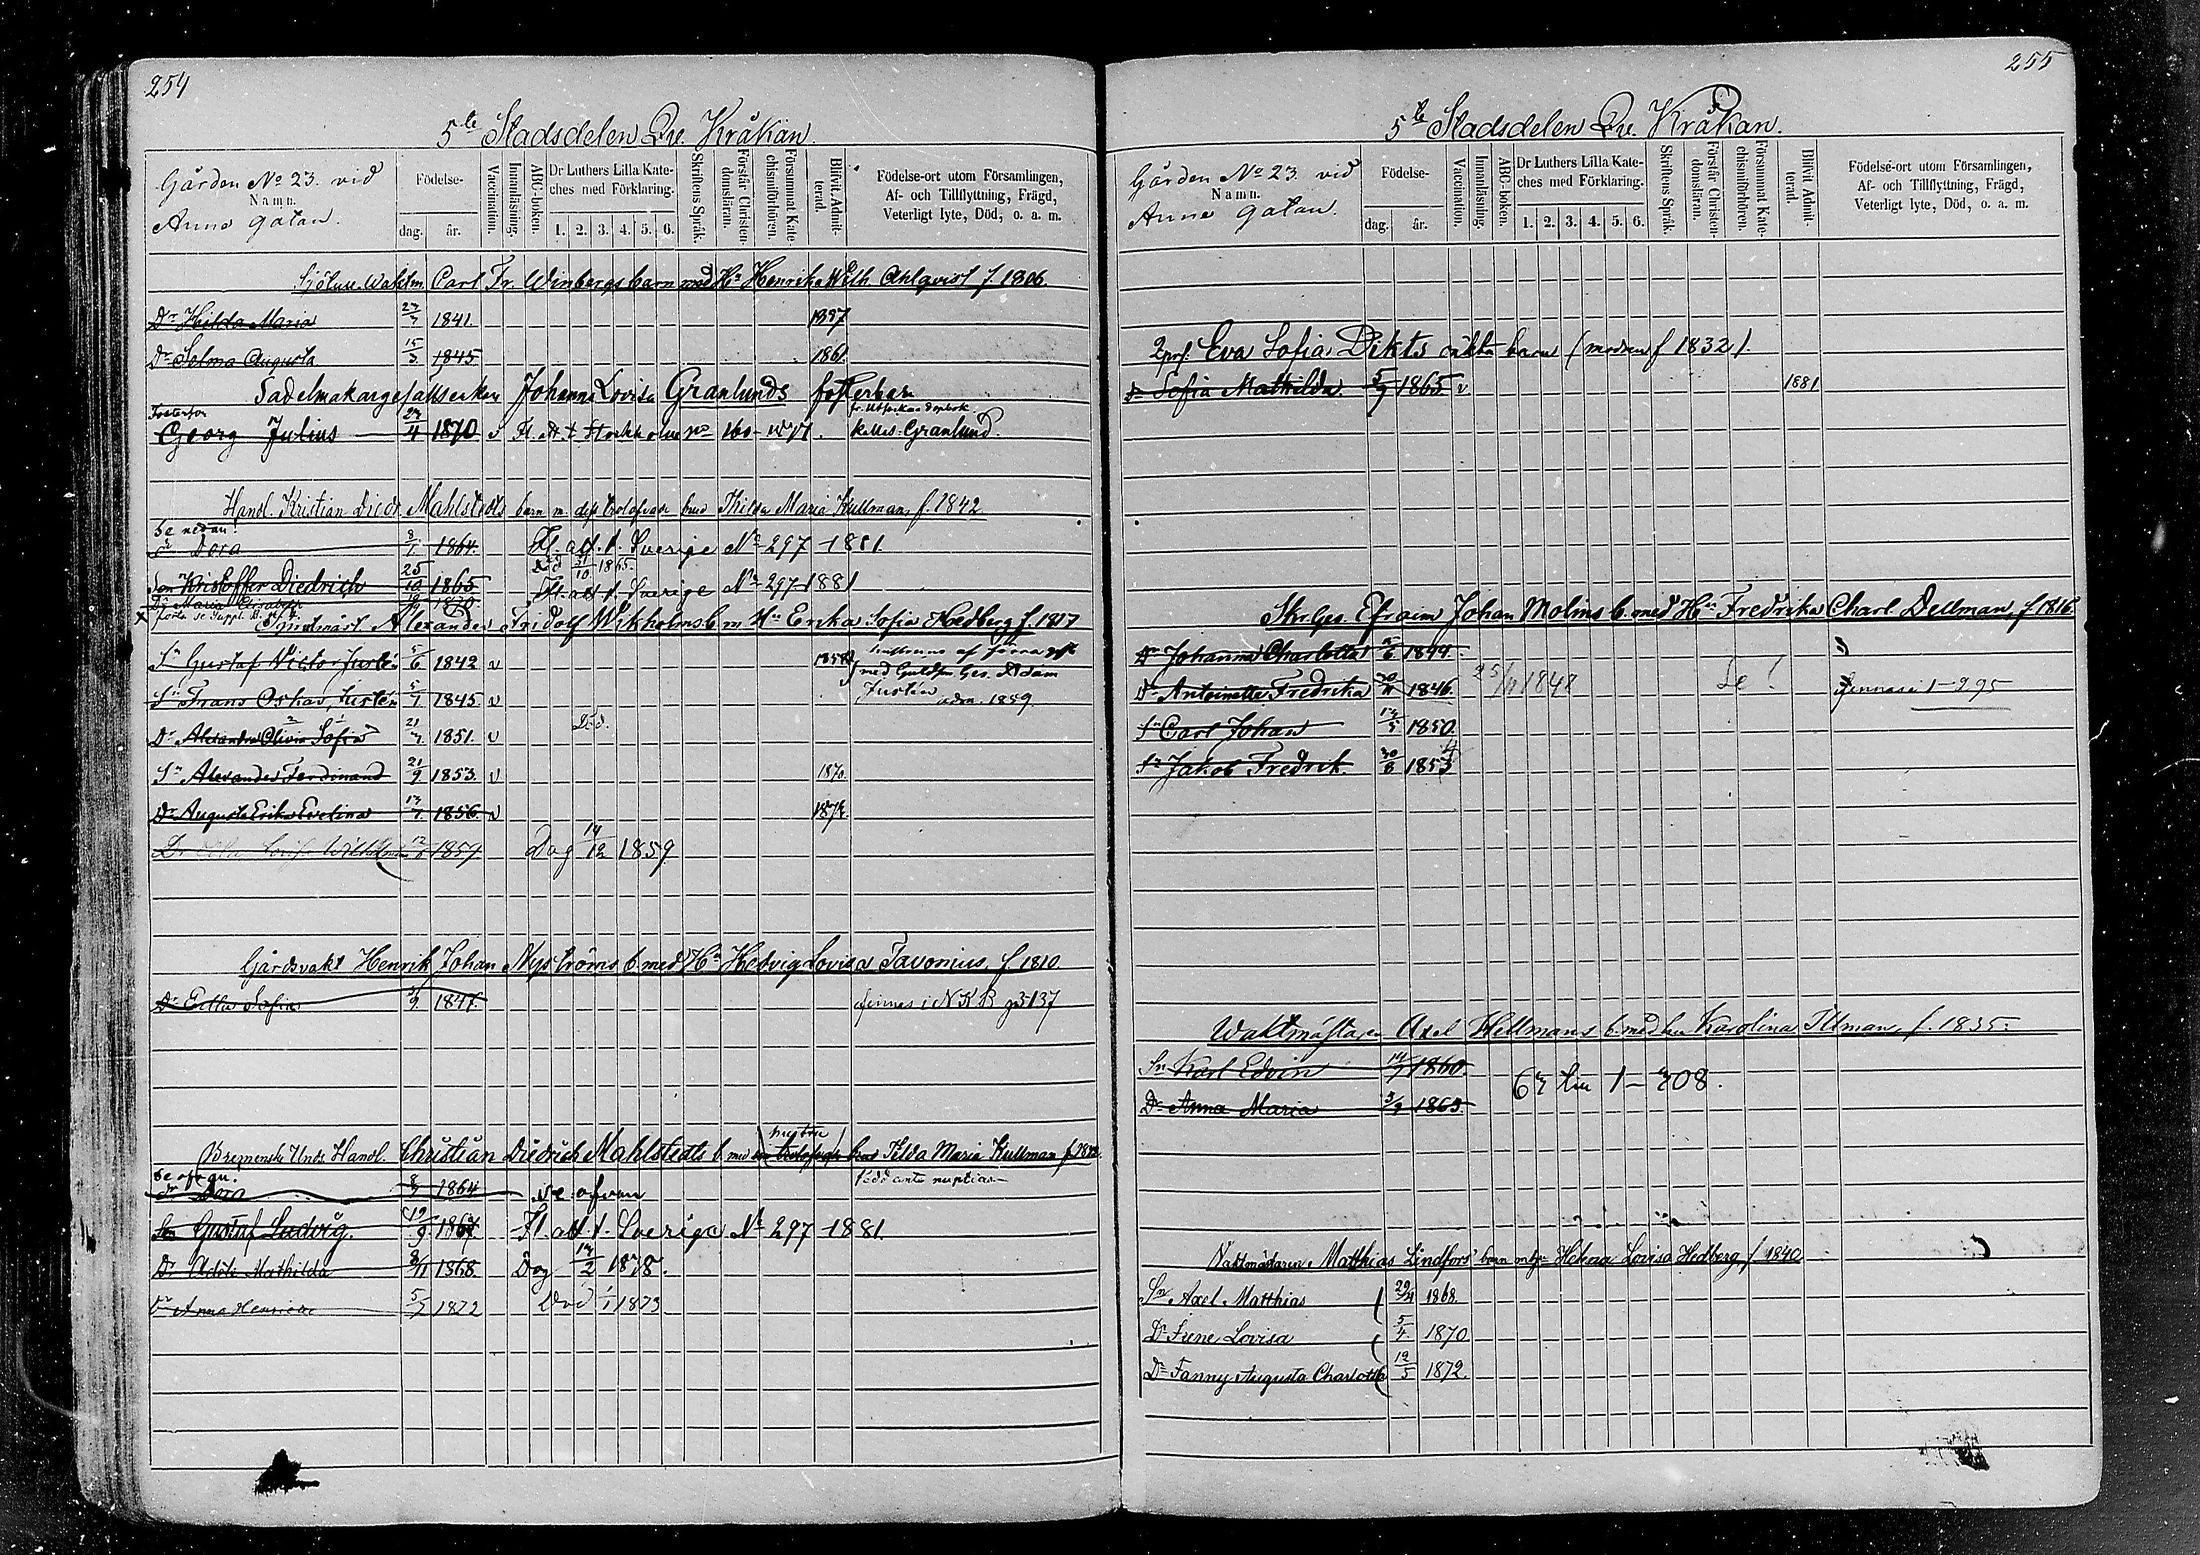 254
5te Stadsdelen Qv. Kråkan.
Gården No 23. vid
Namn.
Anna gatan.
Födelse-
dag. år.
Vaccination.
Innanläsning.
ABC-boken.
Dr Luthers Lilla Kate-
ches med Förklaring.
1. 2. 3. 4. 5. 6.
Skriftens Språk.
Förstår Christen-
domsläran.
Försummat Kate-
chismiförhören.
Blifvit Admit-
terad.
Födelse-ort utom Församlingen,
Af- och Tillflyttning, Frägd,
Veterligt lyte, Död, o. a. m.
Carl Fr. Winbergs barn med Hu Henrika Wilh. Ahlqvist f. 1806.
Dr Hilda Maria 1841. 1857
Dr Selma Augusta 15/3 1845 1861
Sadelmakaregesällsenkan Johanna Lovisa Granlunds fosterbarn
Georg Julius 27/4 1870 v Fl. att. t. Stockholm No 160 Granlund.
Handl. Kristian Diedr. Mahlstedts barn m. dess trolofvade brud Thilda Maria Kullman, f. 1842
Se nedan!
Dr Dora 8/1 1864. Fl. att. t. Sverige No 297 - 1881.
Död 31/10 1865.
Son Kristoffer Diedrich 25/10 1865 Fl. att. t. Sverige No 297 1881
Dr Maria Elisabeth 1870
Alexander Fridolf Wikholms b. m. Hu Erika Sofia Hedberg f. 1817
Sn Gustaf Victor Justén 5/6 1842 v 1858
med Guldsm. Ges. Adam
Sn Frans Oskar, Justén 5/1 1845. v Justén adm. 1859.
Dr Alexandra Olivia Sofia 21/7 1851. v Död.
Sn Alexander Ferdinand 21/9 1853. v 1870.
Dr Augusta Erika Evelina 1856. v
Dr Lovisa Wilhelmina 1859 Dog 14/12 1859.
Gårdsvakt Henrik Johan Nyströms b. med Hu Hedvig Lovisa Tavonius, f. 1810.
Dr Edla Sofia 1847. finnes i N K B p 137
Bremenske Unds. Handl. Christian Diedrich Mahlstedts b. med hustru Tilda Maria Kullman
Se ofvan.
Dr Dora 1864 se ofvan född ante nuptias
Son Gustaf Ludvig. 19/9 1867. Fl. att. t. Sverige No 297 - 1881.
Dr Adèle Mathilda 8/11 1868. Dog 17/2 1878.
Dr Anna Henriette 5/7 1872 Död 1873
255
5te Stadsdelen Qv. Kråkan.
Gården No 23. vid
Namn.
Anna gatan.
Födelse-
dag. år.
Vaccination.
Innanläsning.
ABC-boken.
Dr Luthers Lilla Kate-
ches med Förklaring.
1. 2. 3. 4. 5. 6.
Skriftens Språk.
Förstår Christen-
domsläran.
Försummat Kate-
chismiförhören.
Blifvit Admit-
terad.
Födelse-ort utom Församlingen,
Af- och Tillflyttning, Frägd,
Veterligt lyte, Död, o. a. m.
Eva Sofia Dikts oäkta barn (modren f 1832).
Dr Sofia Mathilda. 1865 v 1881
Skr. Ges. Efraim Johan Molins b. med Hu Fredrika Charl. Dellman, f. 1816.
Dr Johanna Charlotta 1844.
Dr Antoinette Fredrika 1846. 1848 Se! finnes i 1-295
Sn Carl Johan 17/5 1850.
Sn Jakob Fredrik. 30/8 1853
Waktmästaren Axel Hellmans b. med hu Karolina f. 1835.
Sn Karl Edvin 1860.
Dr Anna Maria 1863. 1-708.
Vaktmästaren Matthias Lindfors' barn m. Helena Lovisa Hedberg, f. 1840.
Sn Axel Matthias 29/4 1868.
Dr Irene Lovisa 5/4 1870
Dr Fanny Augusta Charlotta 12/5 1872.